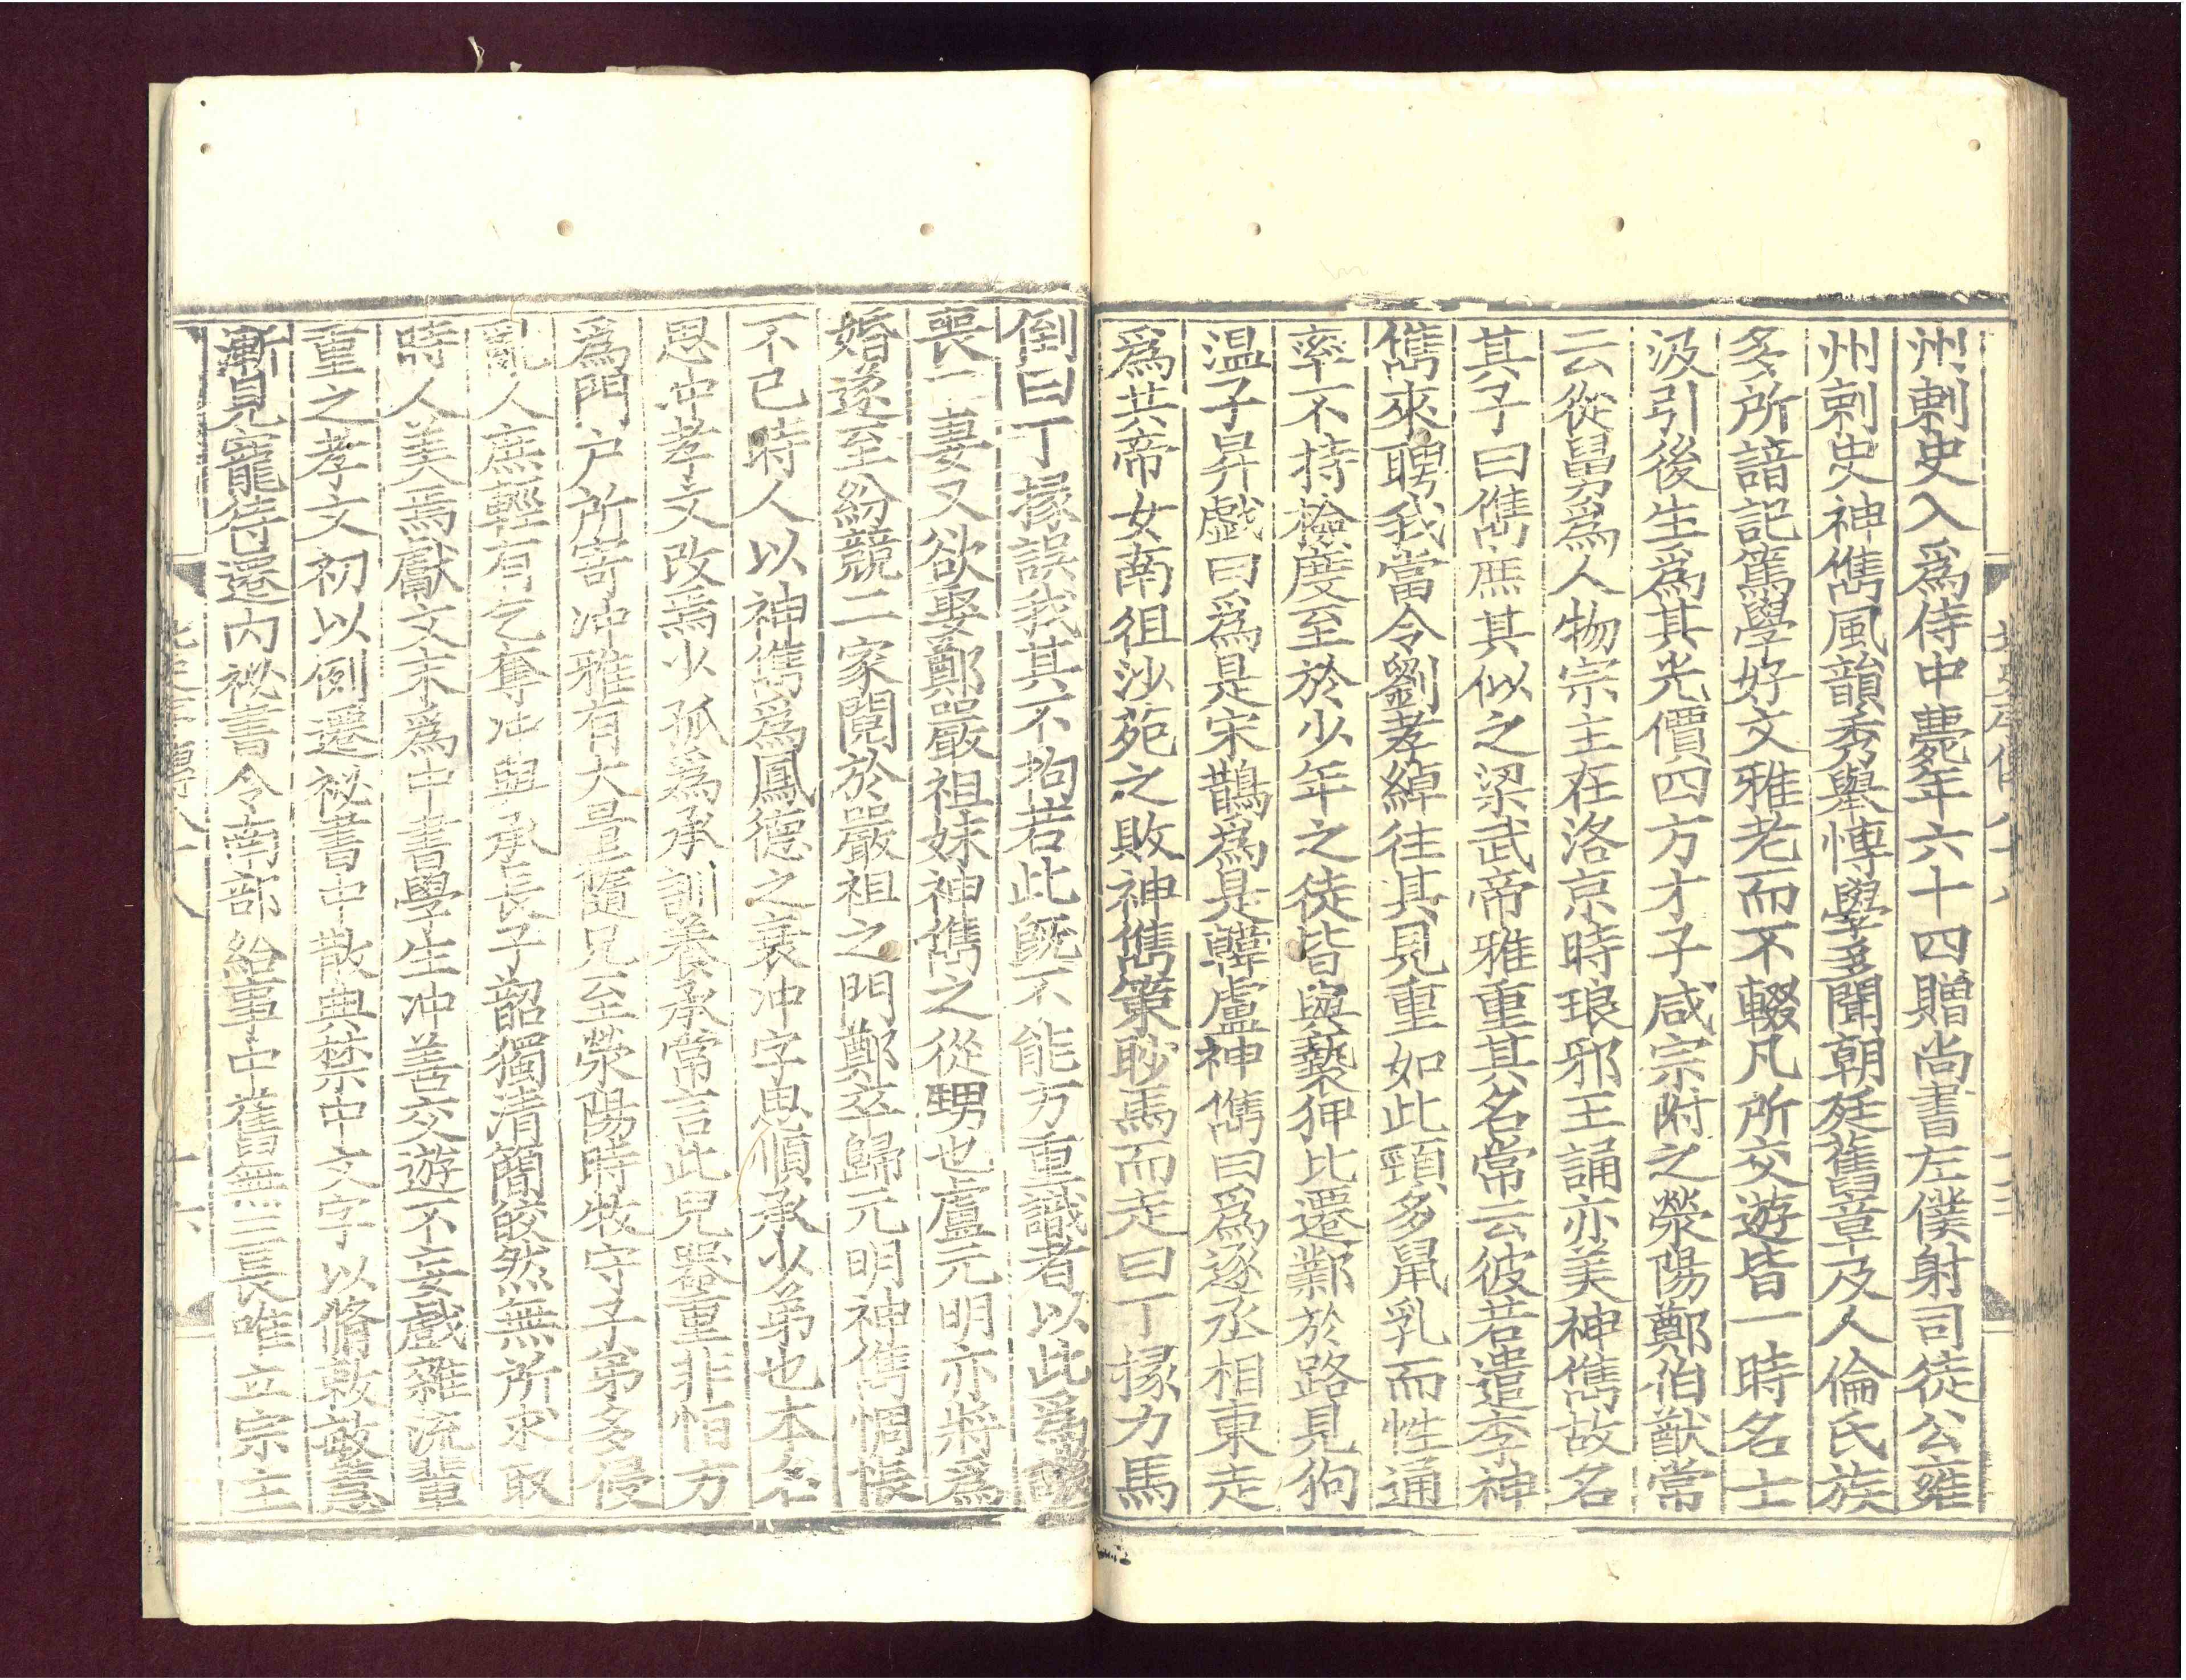 州刺史入爲侍中薨年六十四贈尚書左僕射司徒公雍
州刺史神儁風韻秀舉博學多聞朝廷舊章及人倫氏族
多所諳記篤學好文雅老而不輟凡所交遊皆一時名士
汲引後生爲其光價四方才子咸宗附之滎陽鄭伯猷常
云從舅爲人物宗主在洛京時琅邪王誦亦美神儁故名
其子曰儁庶其似之梁武帝雅重其名常云彼若遣李神
儁來聘我當令劉孝綽往其見重如此頸多鼠乳而性通
率不持檢度至於少年之徒皆與褻狎比遷鄴於路見狗
温子昇戯曰爲是宋鵲爲是韓盧神儁曰爲逐丞相東走
爲共帝女南徂沙苑之敗神儁策眇馬而走曰丁掾力馬
倒曰丁掾誤我其不拘若此既不能方重識者以此爲譏
喪二妻又欲娶鄭嚴祖妹神儁之從甥也盧元明亦將爲
婚遂至紛競二家鬩於嚴祖之門鄭卒歸元明神儁惆悵
不已時人以神儁爲鳳德之衰沖字思順承少弟也本名
思沖孝文改焉少孤爲承訓養承常言此兒器重非恒方
爲門户所寄沖雅有大量隨兄至滎陽時牧守子弟多侵
亂人庶輕有乞奪沖與承長子韶獨清簡皎然無所求取
時人美焉獻文末爲中書學生沖善交遊不妄戯雜流輩
重之孝文初以例遷祕書中散典禁中文字以脩敕敏惠
漸見寵待遷内祕書令南部給事中舊無三長唯立宗主